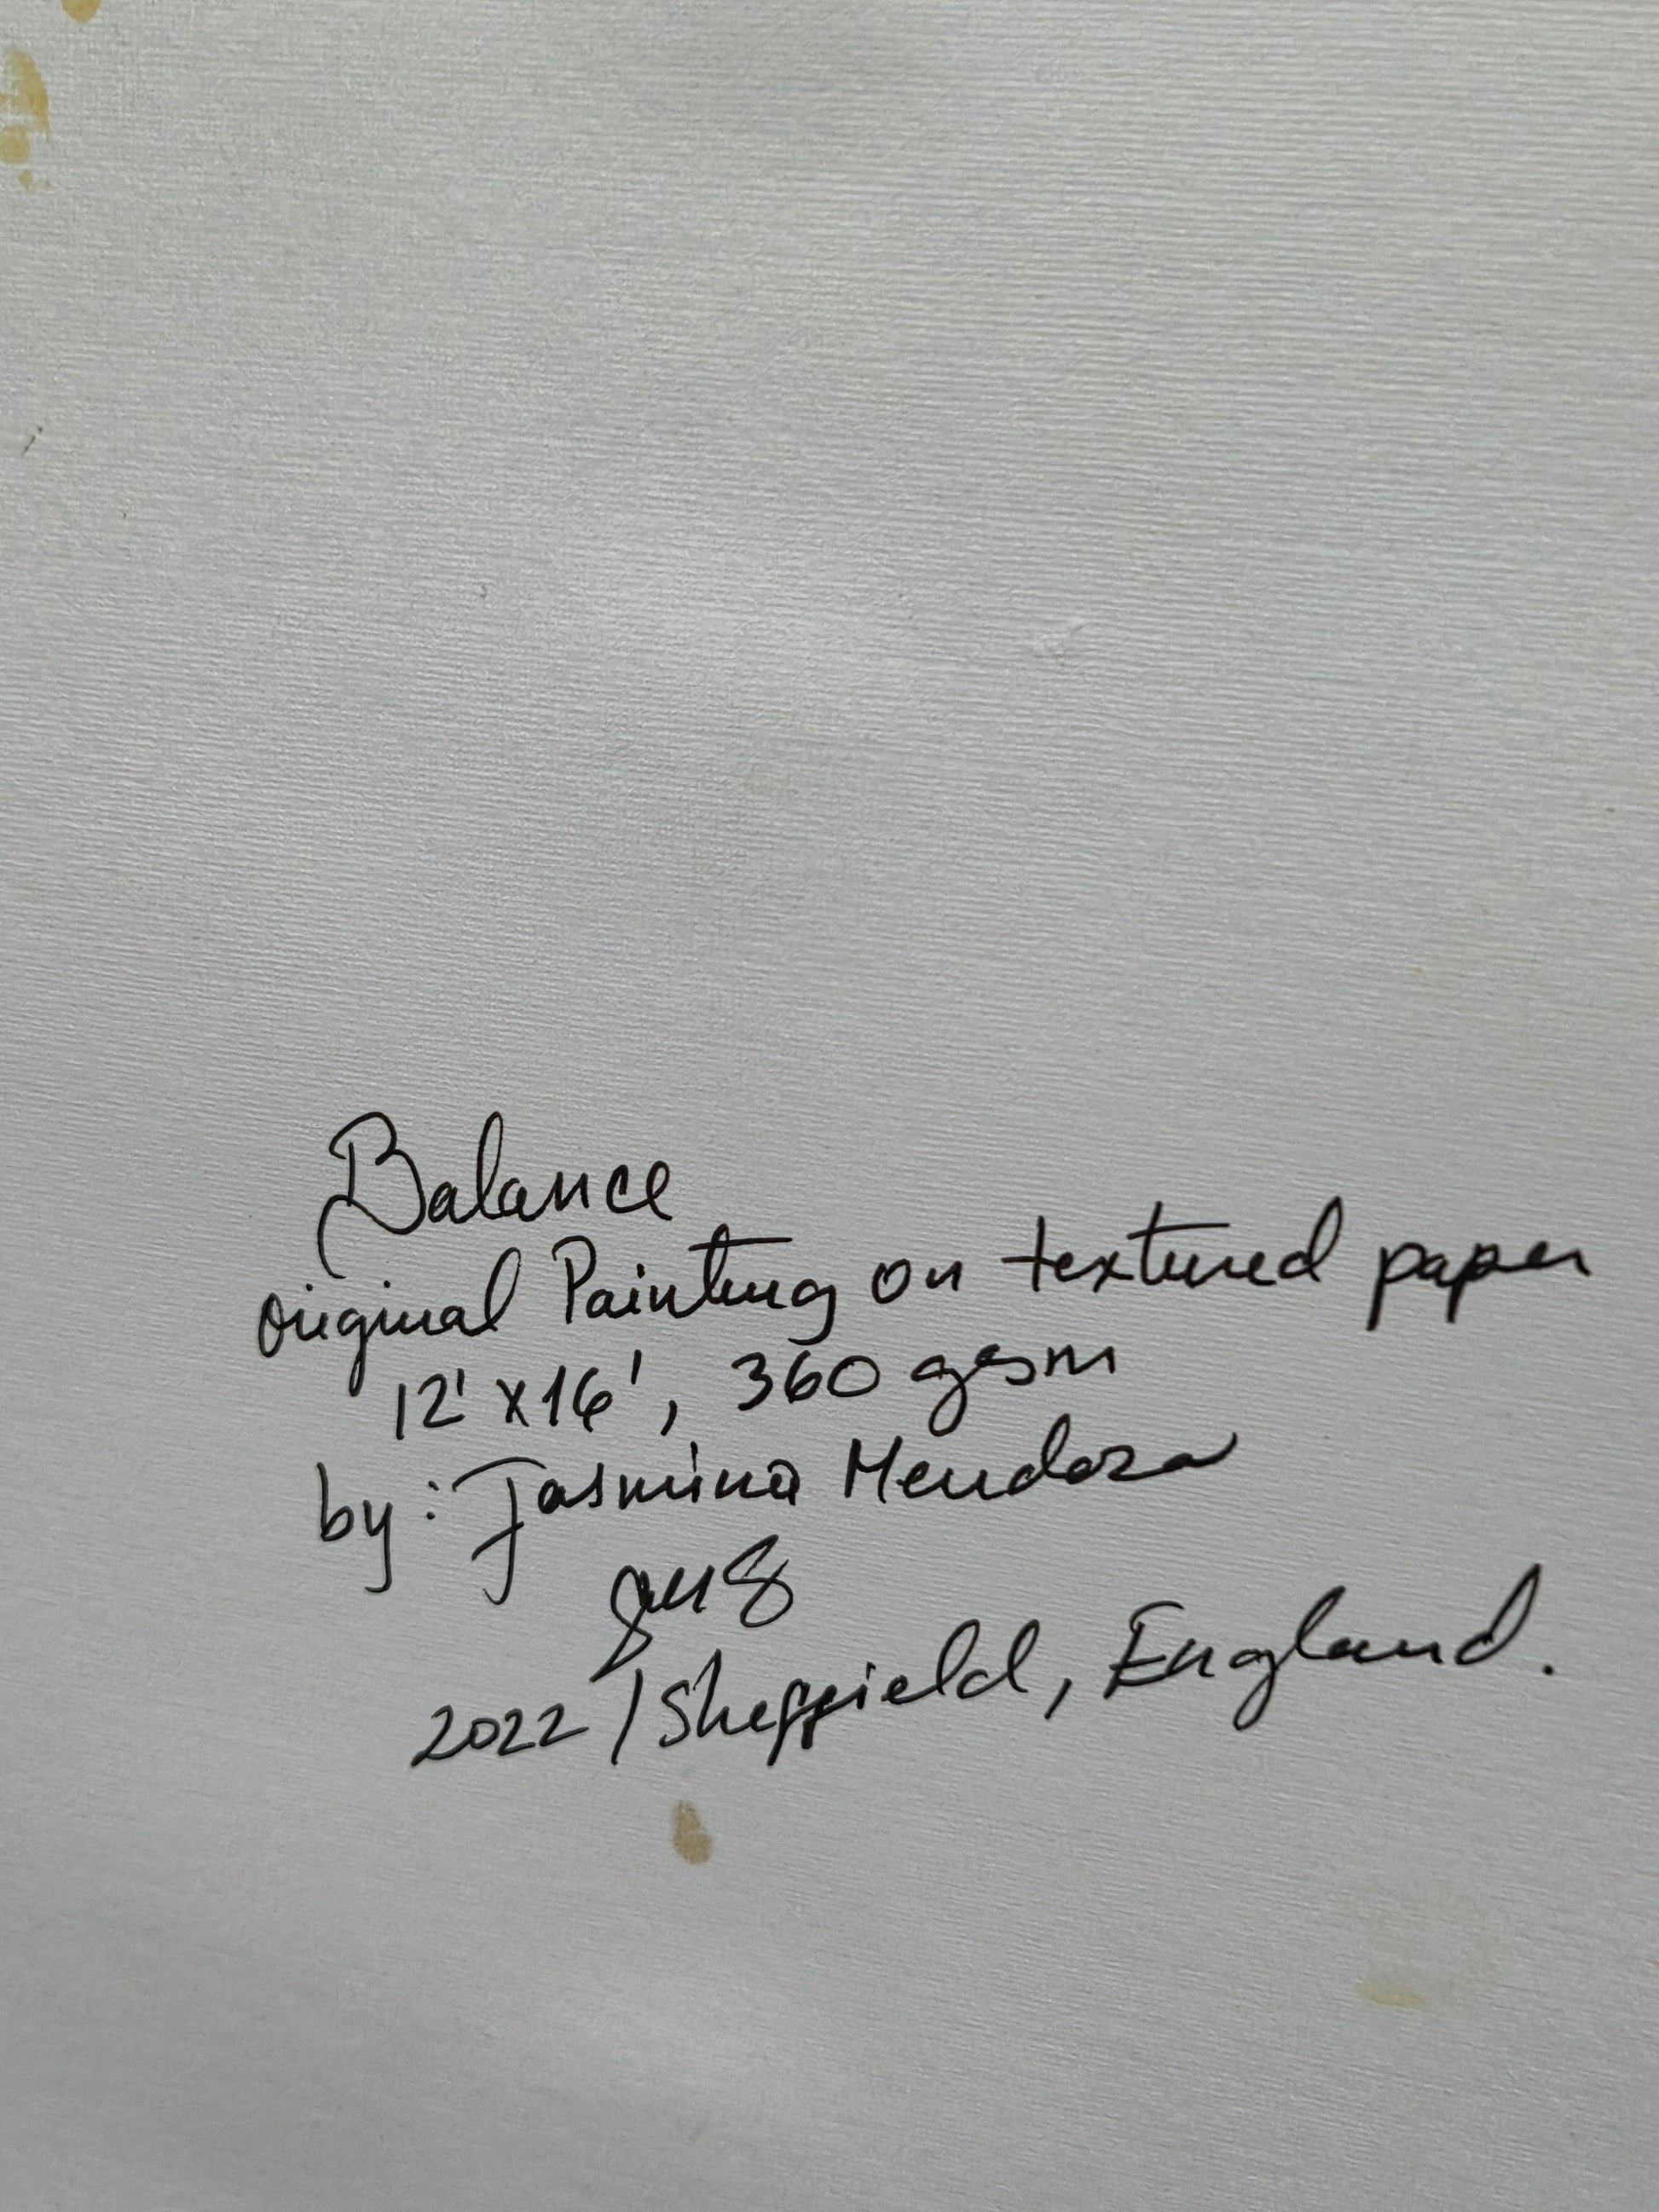 Balance
original Painting on textured paper
12' x 16', 360 gsm
by: Jasmina Mendoza
2022 / Sheffield, England.